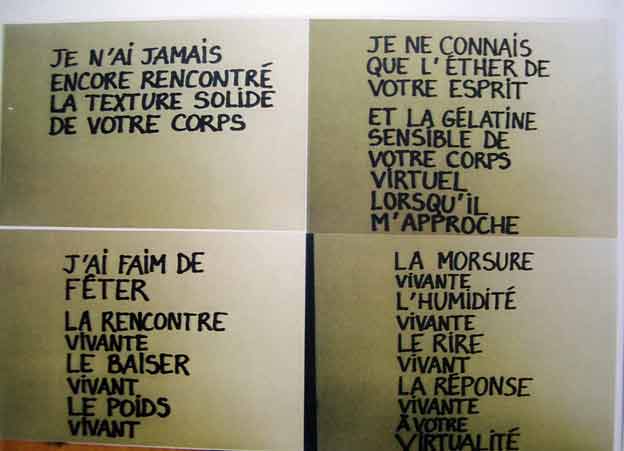 JE N'AI JAMAIS
ENCORE RENCONTRÉ
LA TEXTURE SOLIDE
DE VOTRE CORPS
JE NE CONNAIS
QUE L'ÉTHER DE
VOTRE ESPRIT
ET LA GÉLATINE
SENSIBLE DE
VOTRE CORPS
VIRTUEL
LORSQU'IL
M'APPROCHE
J'AI FAIM DE
FÊTER
LA RENCONTRE
VIVANTE
LE BAISER
VIVANT
LE POIDS
VIVANT
LA MORSURE
VIVANTE
L'HUMIDITÉ
VIVANTE
LE RIRE
VIVANT
LA RÉPONSE
VIVANTE
À VOTRE
VIRTUALITÉ